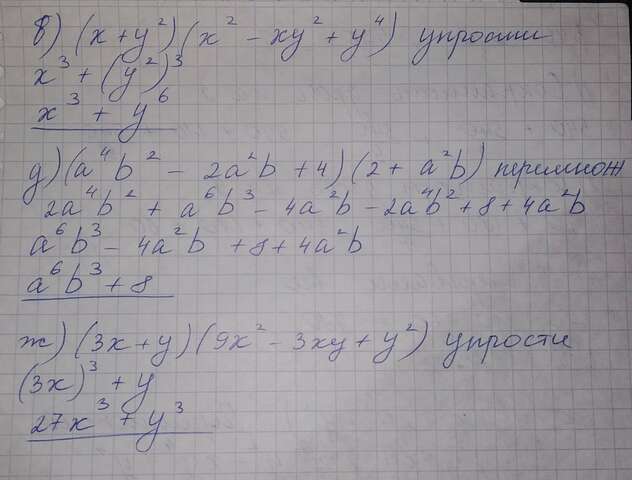 в) (x + y²) (x² - xy² + y⁴) упрости
x³ + (y²)³
x³ + y⁶
д) (a⁴b² - 2a²b + 4) (2 + a²b) перемнож
2a⁴b² + a⁶b³ - 4a²b - 2a⁴b² + 8 + 4a²b
a⁶b³ - 4a²b + 8 + 4a²b
a⁶b³ + 8
ж) (3x + y) (9x² - 3xy + y²) упрости
(3x)³ + y
27x³ + y³